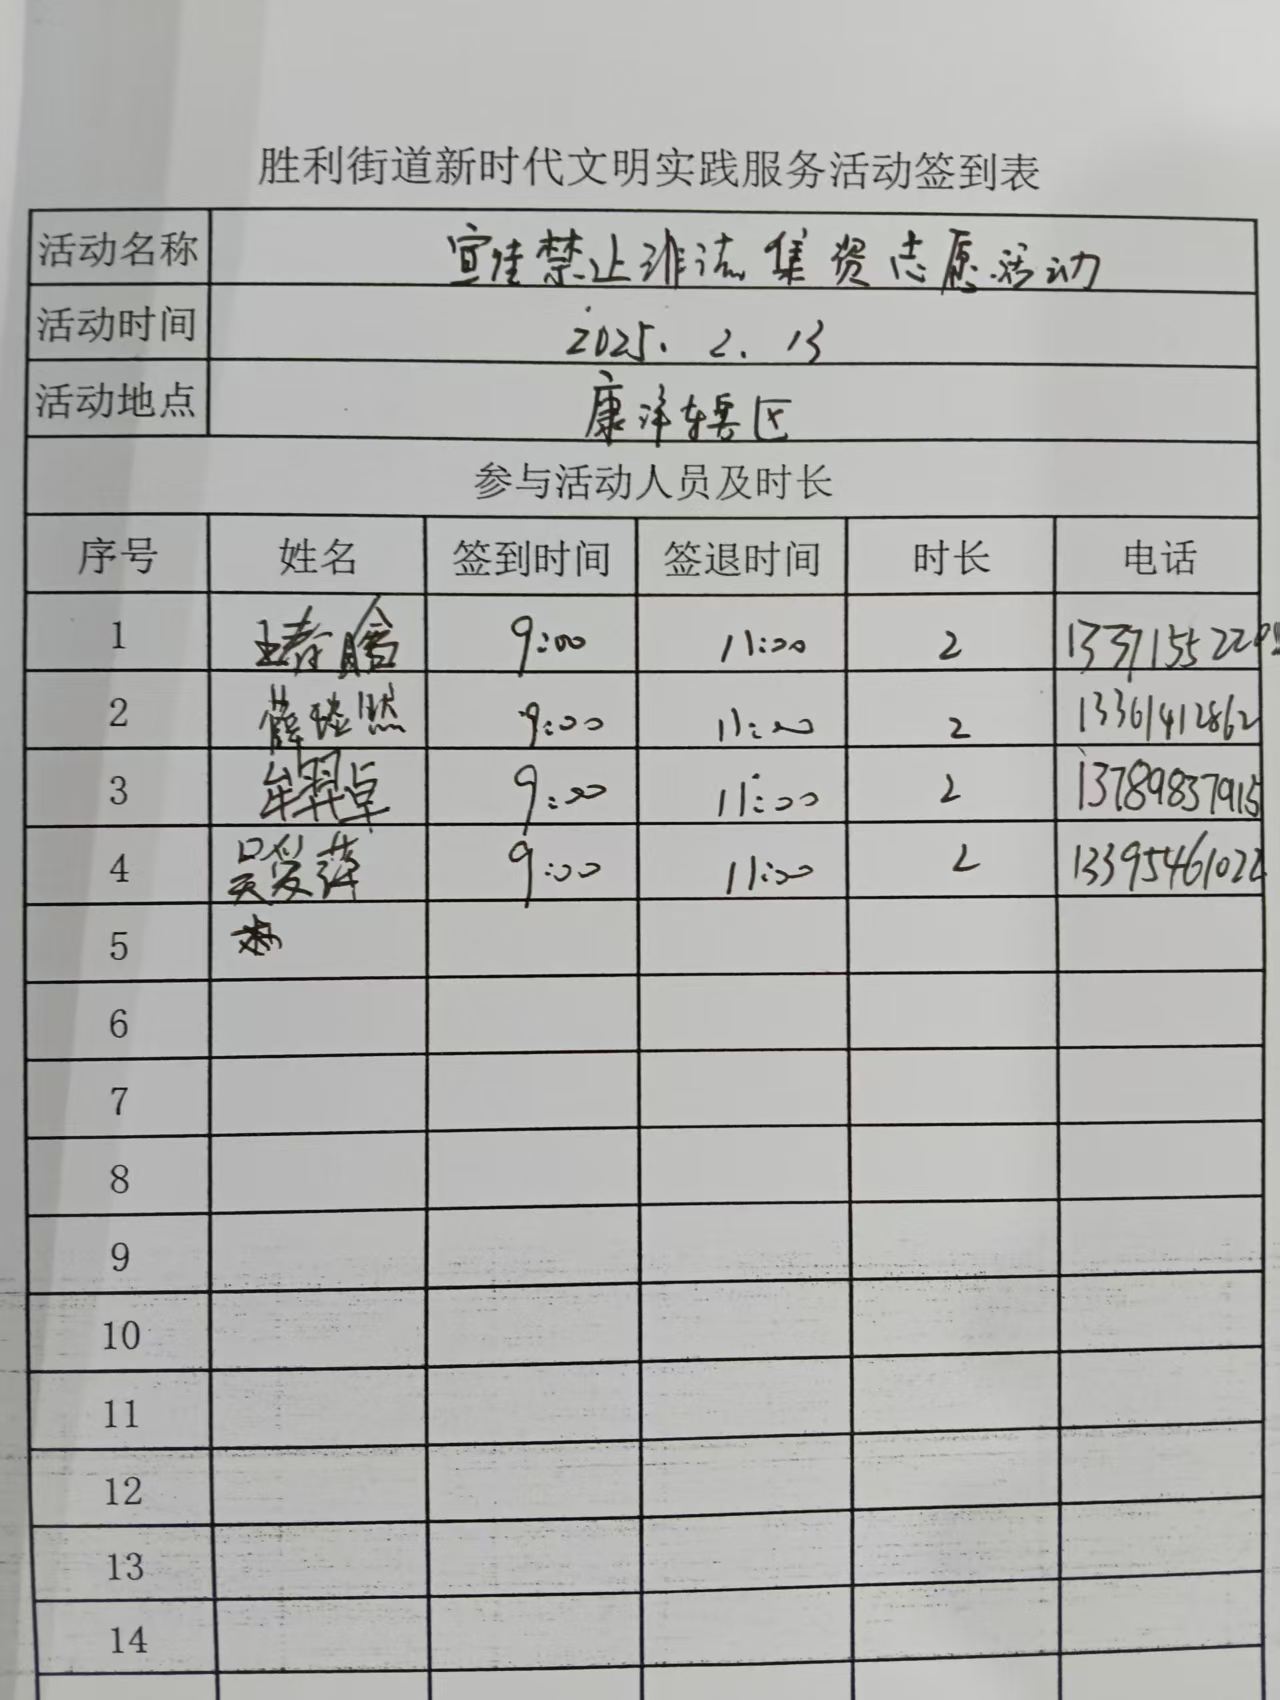 胜利街道新时代文明实践服务活动签到表
活动名称 宣传禁止非法集资志愿活动
活动时间 2025.2.13
活动地点 康洋辖区
参与活动人员及时长
序号 姓名 签到时间 签退时间 时长 电话
1 9:00 11:00 2
2 薛璒然 9:00 11:00 2 13361412862
3 牟羿卓 9:00 11:00 2 13789837915
4 吴爱萍 9:00 11:00 2 13395461022
5
6
7
8
9
10
11
12
13
14